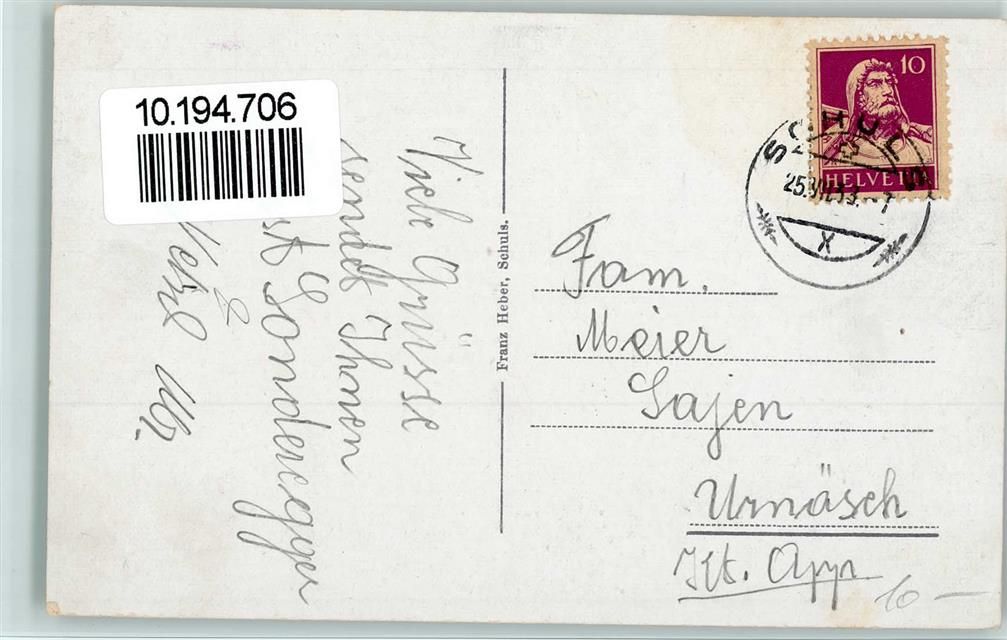 10.194.706
Viele Grüsse
sendet Ihnen
st Sonderegger
&
Franz Heber, Schuls.
10
HELVETIA
SCHULS
25.
X
Fam.
Meier
Sajen
Urnäsch
Kt. App
10 —